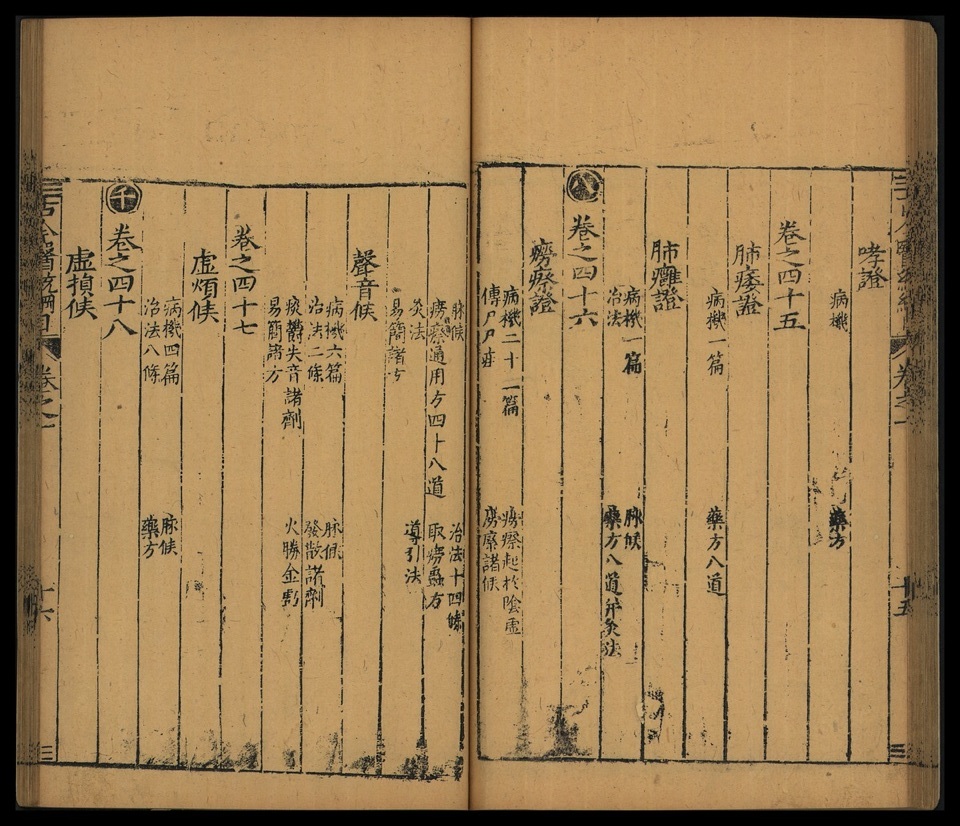 哮證
病機
藥方
卷之四十五
肺痿證
病機一篇
藥方八道
肺癰證
病機一篇
脉候
治法
藥方八道并灸法
八
卷之四十六
癆瘵證
病機二十一篇
癆瘵起於陰虛
傳尸
癆瘵諸候
脉候
治法十四條
癆瘵通用方四十八道
取癆蟲方
灸法
導引法
易簡諸方
聲音候
病機六篇
脉候
治法二條
發散諸劑
痰鬱失音諸劑
火勝金虧
易簡諸方
卷之四十七
虛煩候
病機四篇
脉候
治法八條
藥方
千
卷之四十八
虛損候
卷之一
十六
十五
三
三